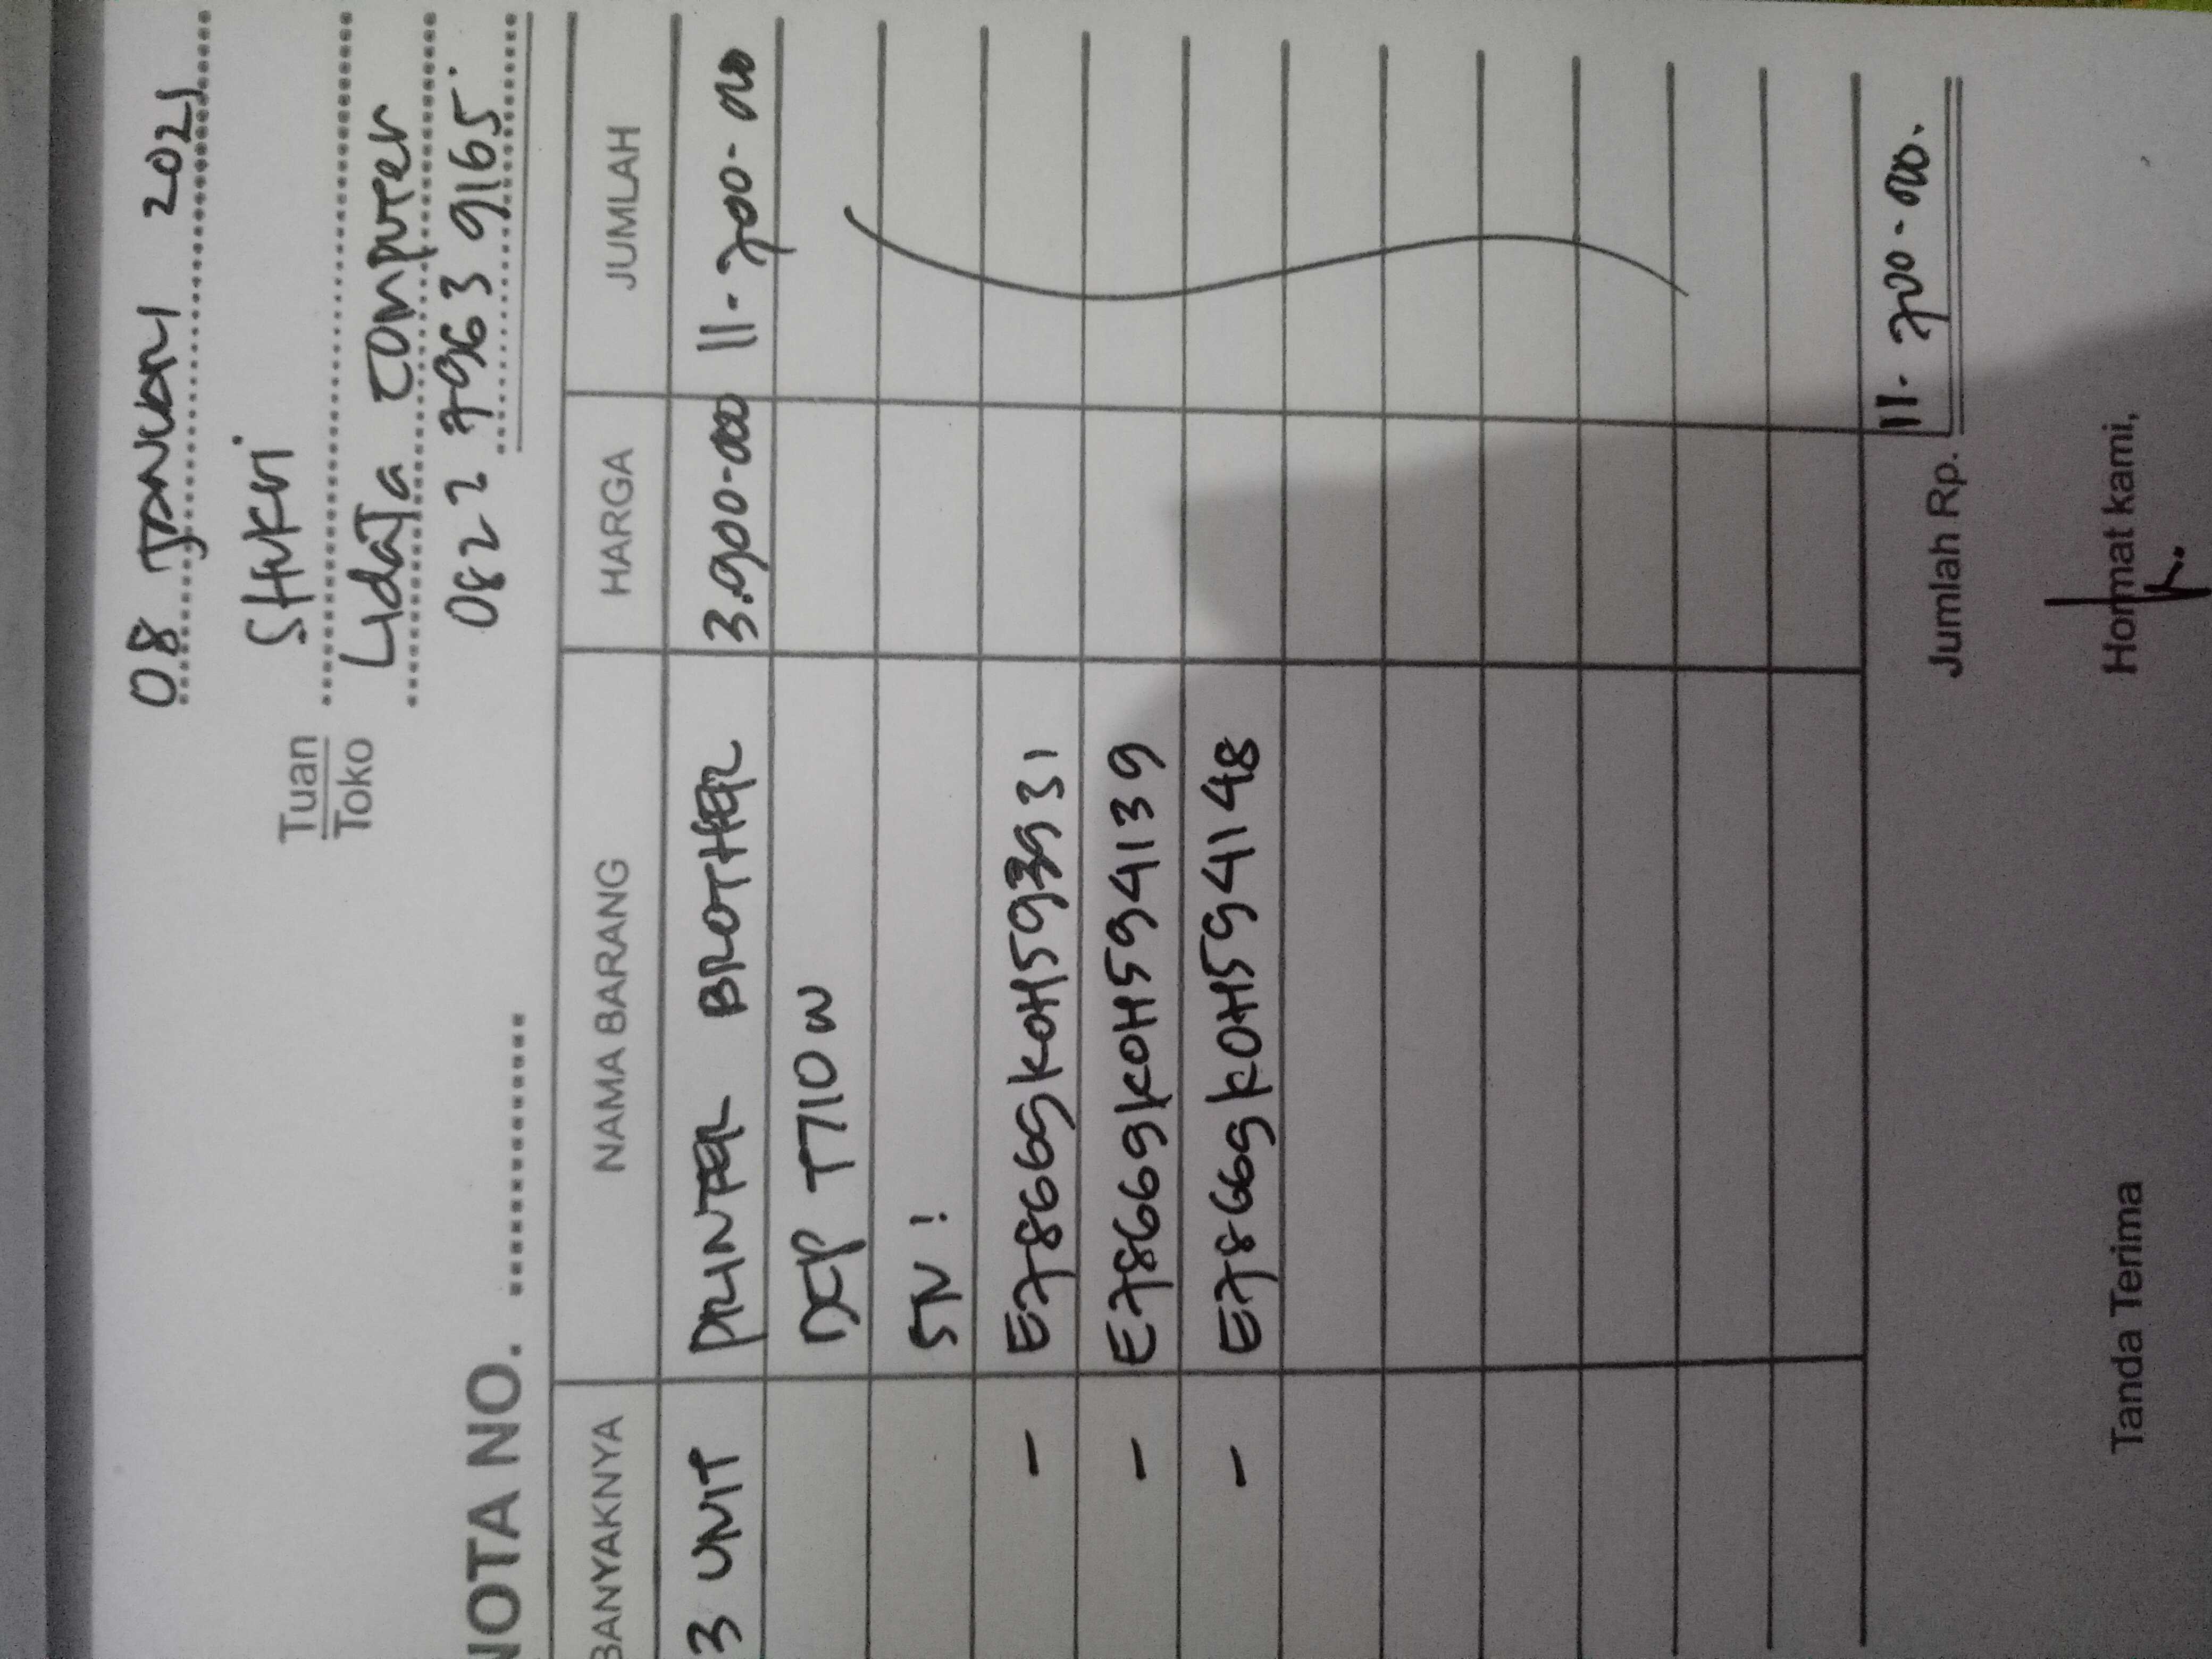 08 JANUARI 2021
Tuan SHUKRI
Toko Lidata computer
0822 7963 9165
NOTA NO. ...............
BANYAKNYA NAMA BARANG HARGA JUMLAH
3 UNIT PRINTER BROTHER 3.900-000 11-700-000
DCP T710W
SN :
- E78669K0H593931
- E78669K0H594139
- E78669K0H594148
Jumlah Rp. 11-700-000.
Tanda Terima Hormat kami,